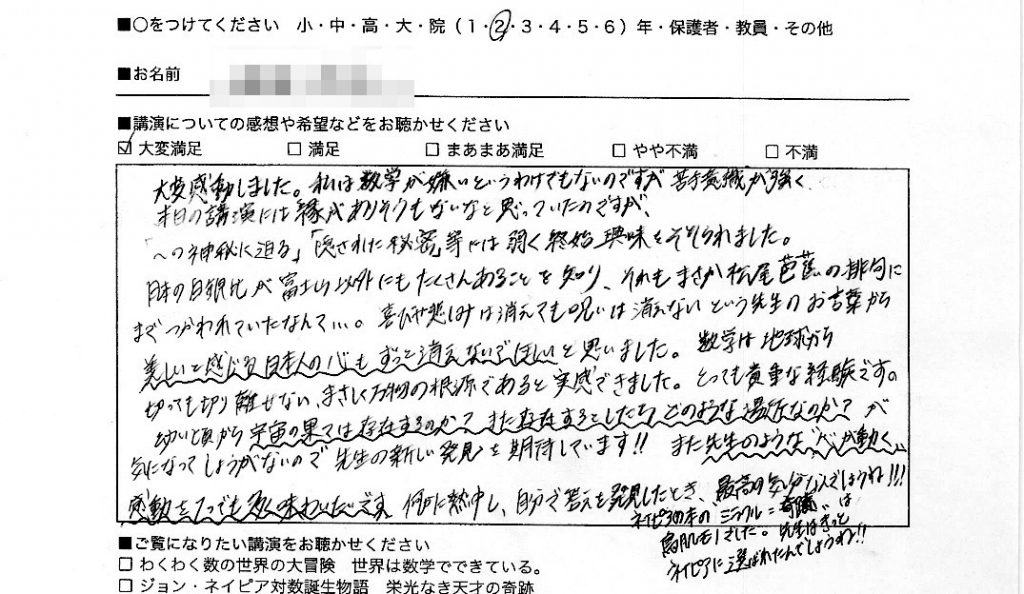 ■○をつけてください 小・中・高・大・院(1・2・3・4・5・6)年・保護者・教員・その他
■お名前
■講演についての感想や希望などをお聴かせください
☑ 大変満足 □ 満足 □ まあまあ満足 □ やや不満 □ 不満
大変感動しました。私は数学が嫌いというわけでもないのですが苦手意識が強く
本日の講演には縁がありそうもないなと思っていたのですが、
「〜の神秘に迫る」「隠された秘密」等には弱く終始興味をそそられました。
日本の白銀比が富士山以外にもたくさんあることを知り、それもまさか松尾芭蕉の俳句に
までつかわれていたなんて…。喜びや悲しみは消えても呪いは消えないという先生のお言葉から
美しいと感じる日本人の心もずっと消えないでほしいと思いました。数学は地球から
切っても切り離せない、まさしく万物の根源であると実感できました。とっても貴重な経験です。
幼い頃から宇宙の果ては存在するのか?また存在するとしたらどのような場所なのか?が
気になってしょうがないので先生の新しい発見を期待しています!!また先生のような“心が動く
感動を1つでも多く味わいたいです。何かに熱中し、自分で答えを発見したとき、最高の気分なんでしょうね!!!
ネイピアの本の ミラクル=奇蹟 は
鳥肌モノでした。先生はきっと
ネイピアに選ばれたんでしょうね!!
■ご覧になりたい講演をお聴かせください
□ わくわく数の世界の大冒険 世界は数学でできている。
□ ジョン・ネイピア対数誕生物語 栄光なき天才の奇跡